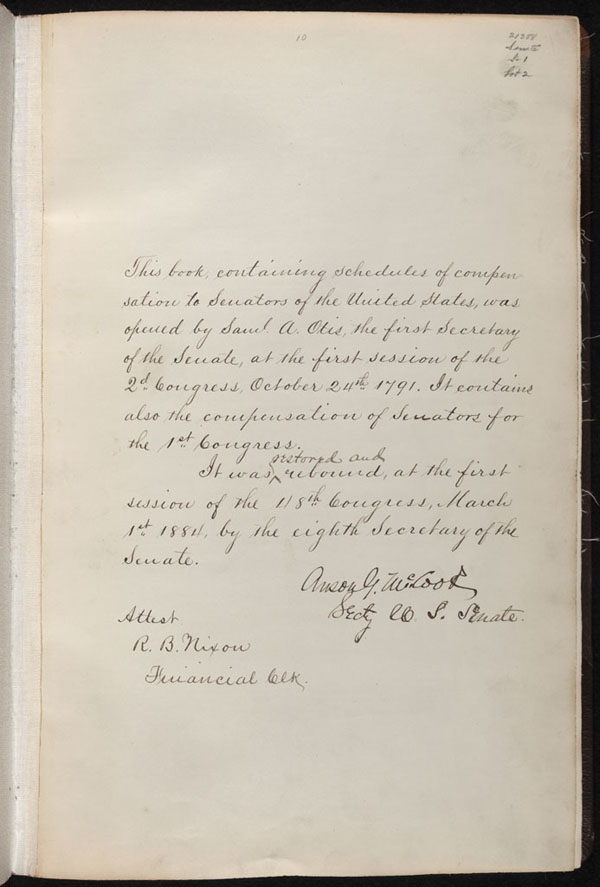 10
21288
Senate
This book, containing schedules of compen
sation to Senators of the United States, was
opened by Saml. A. Otis, the first Secretary
of the Senate, at the first session of the
2d. Congress, October 24th 1791. It contains
also the compensation of Senators for
the 1st Congress.
It was restored and rebound, at the first
session of the 48th Congress, March
1st 1884, by the eighth Secretary of the
Senate.
Anson G. McCook
Secty U. S. Senate.
Attest
R. B. Nixon
Financial Clk.